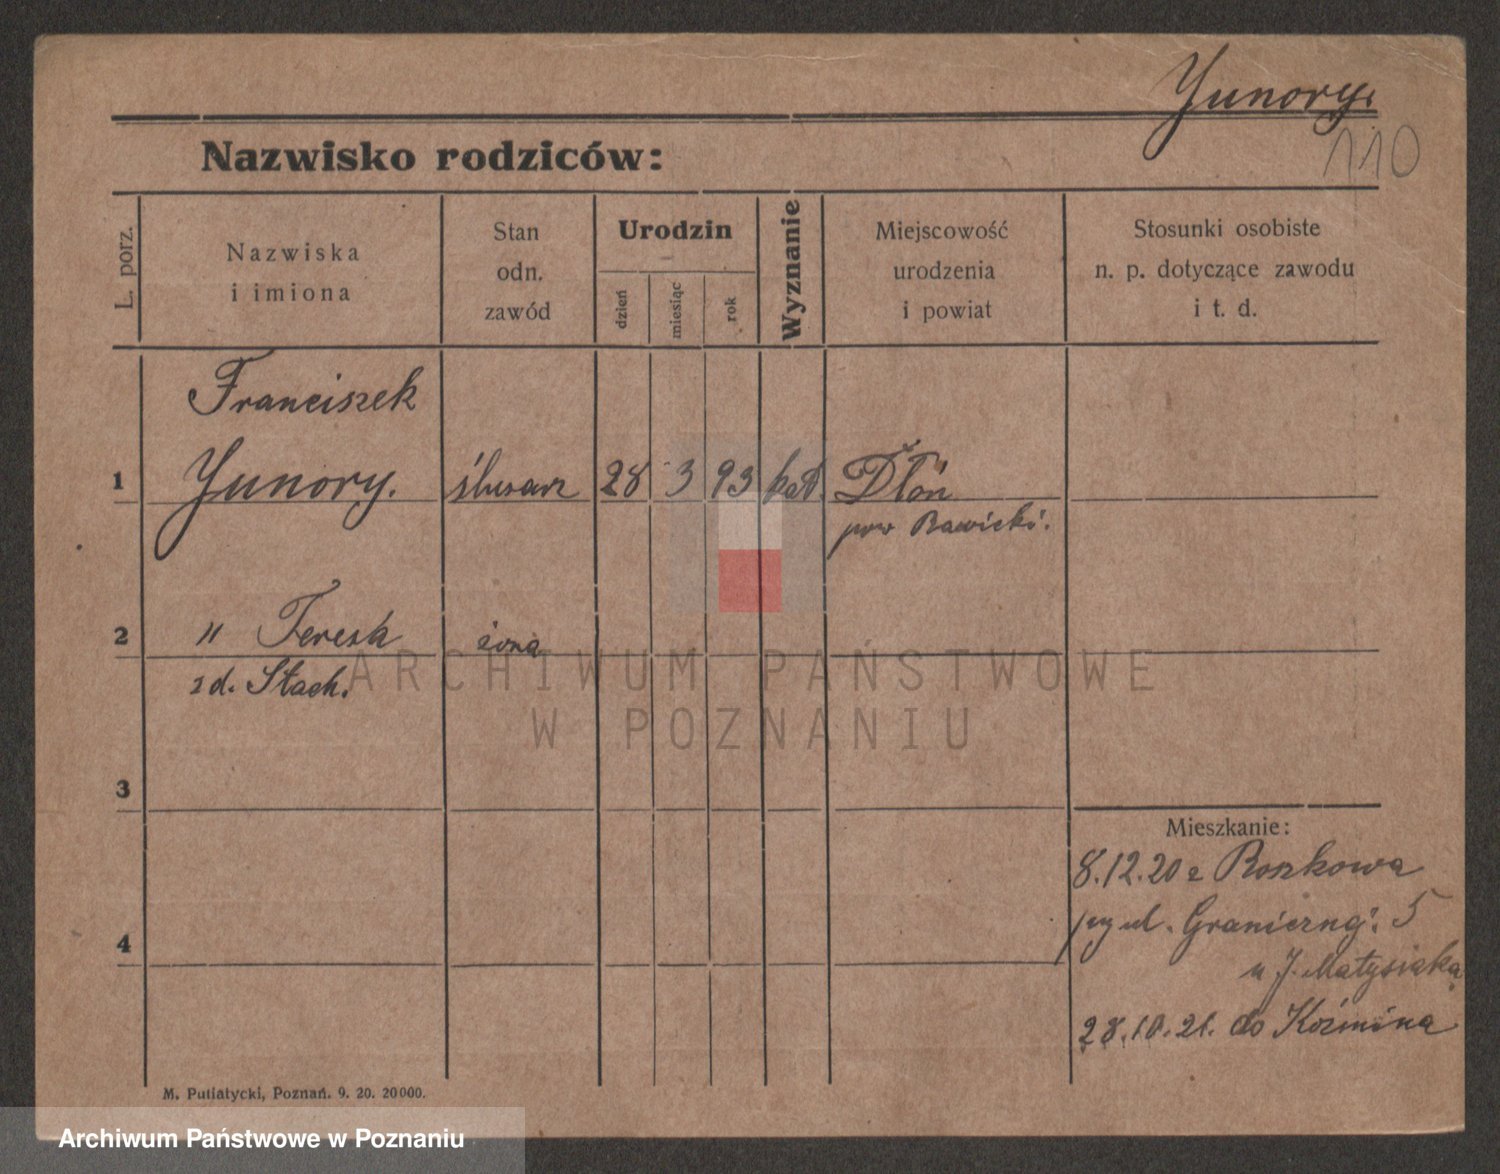 Yunory.
110
Nazwisko rodziców:
L. porz.
Nazwiska
i imiona
Stan
odn.
zawód
Urodzin
dzień
miesiąc
rok
Wyznanie
Miejscowość
urodzenia
i powiat
Stosunki osobiste
n. p. dotyczące zawodu
i t. d.
Franciszek
1 Yunory. ślusarz 28 3 93 kat. Dłoń
pow Rawicki.
2 " Teresa żona
z d. Stach.
ARCHIWUM PAŃSTWOWE
W POZNANIU
3
Mieszkanie:
8.12.20 z Roszkowa
przy ul. Granicznej. 5
4
u J. Matysiaka
28.10.21. do Koźmina
M. Putiatycki, Poznań. 9. 20. 20000.
Archiwum Państwowe w Poznaniu